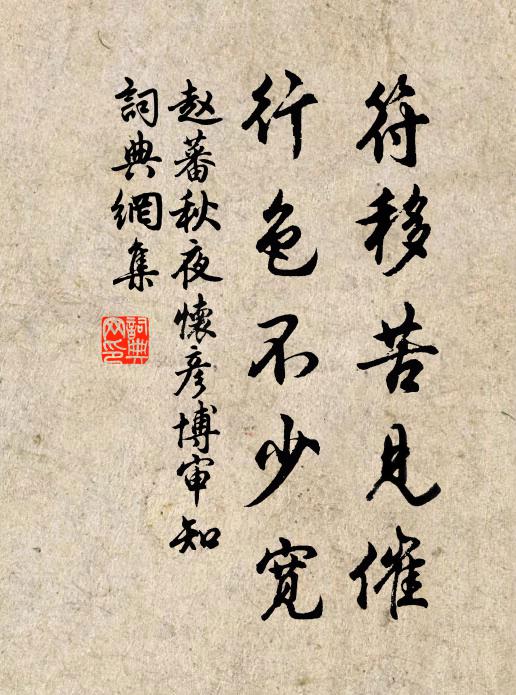 符移苦見催
行色不少寬
赵蕃秋夜懷彦博审知
詞典網集
詞典網印